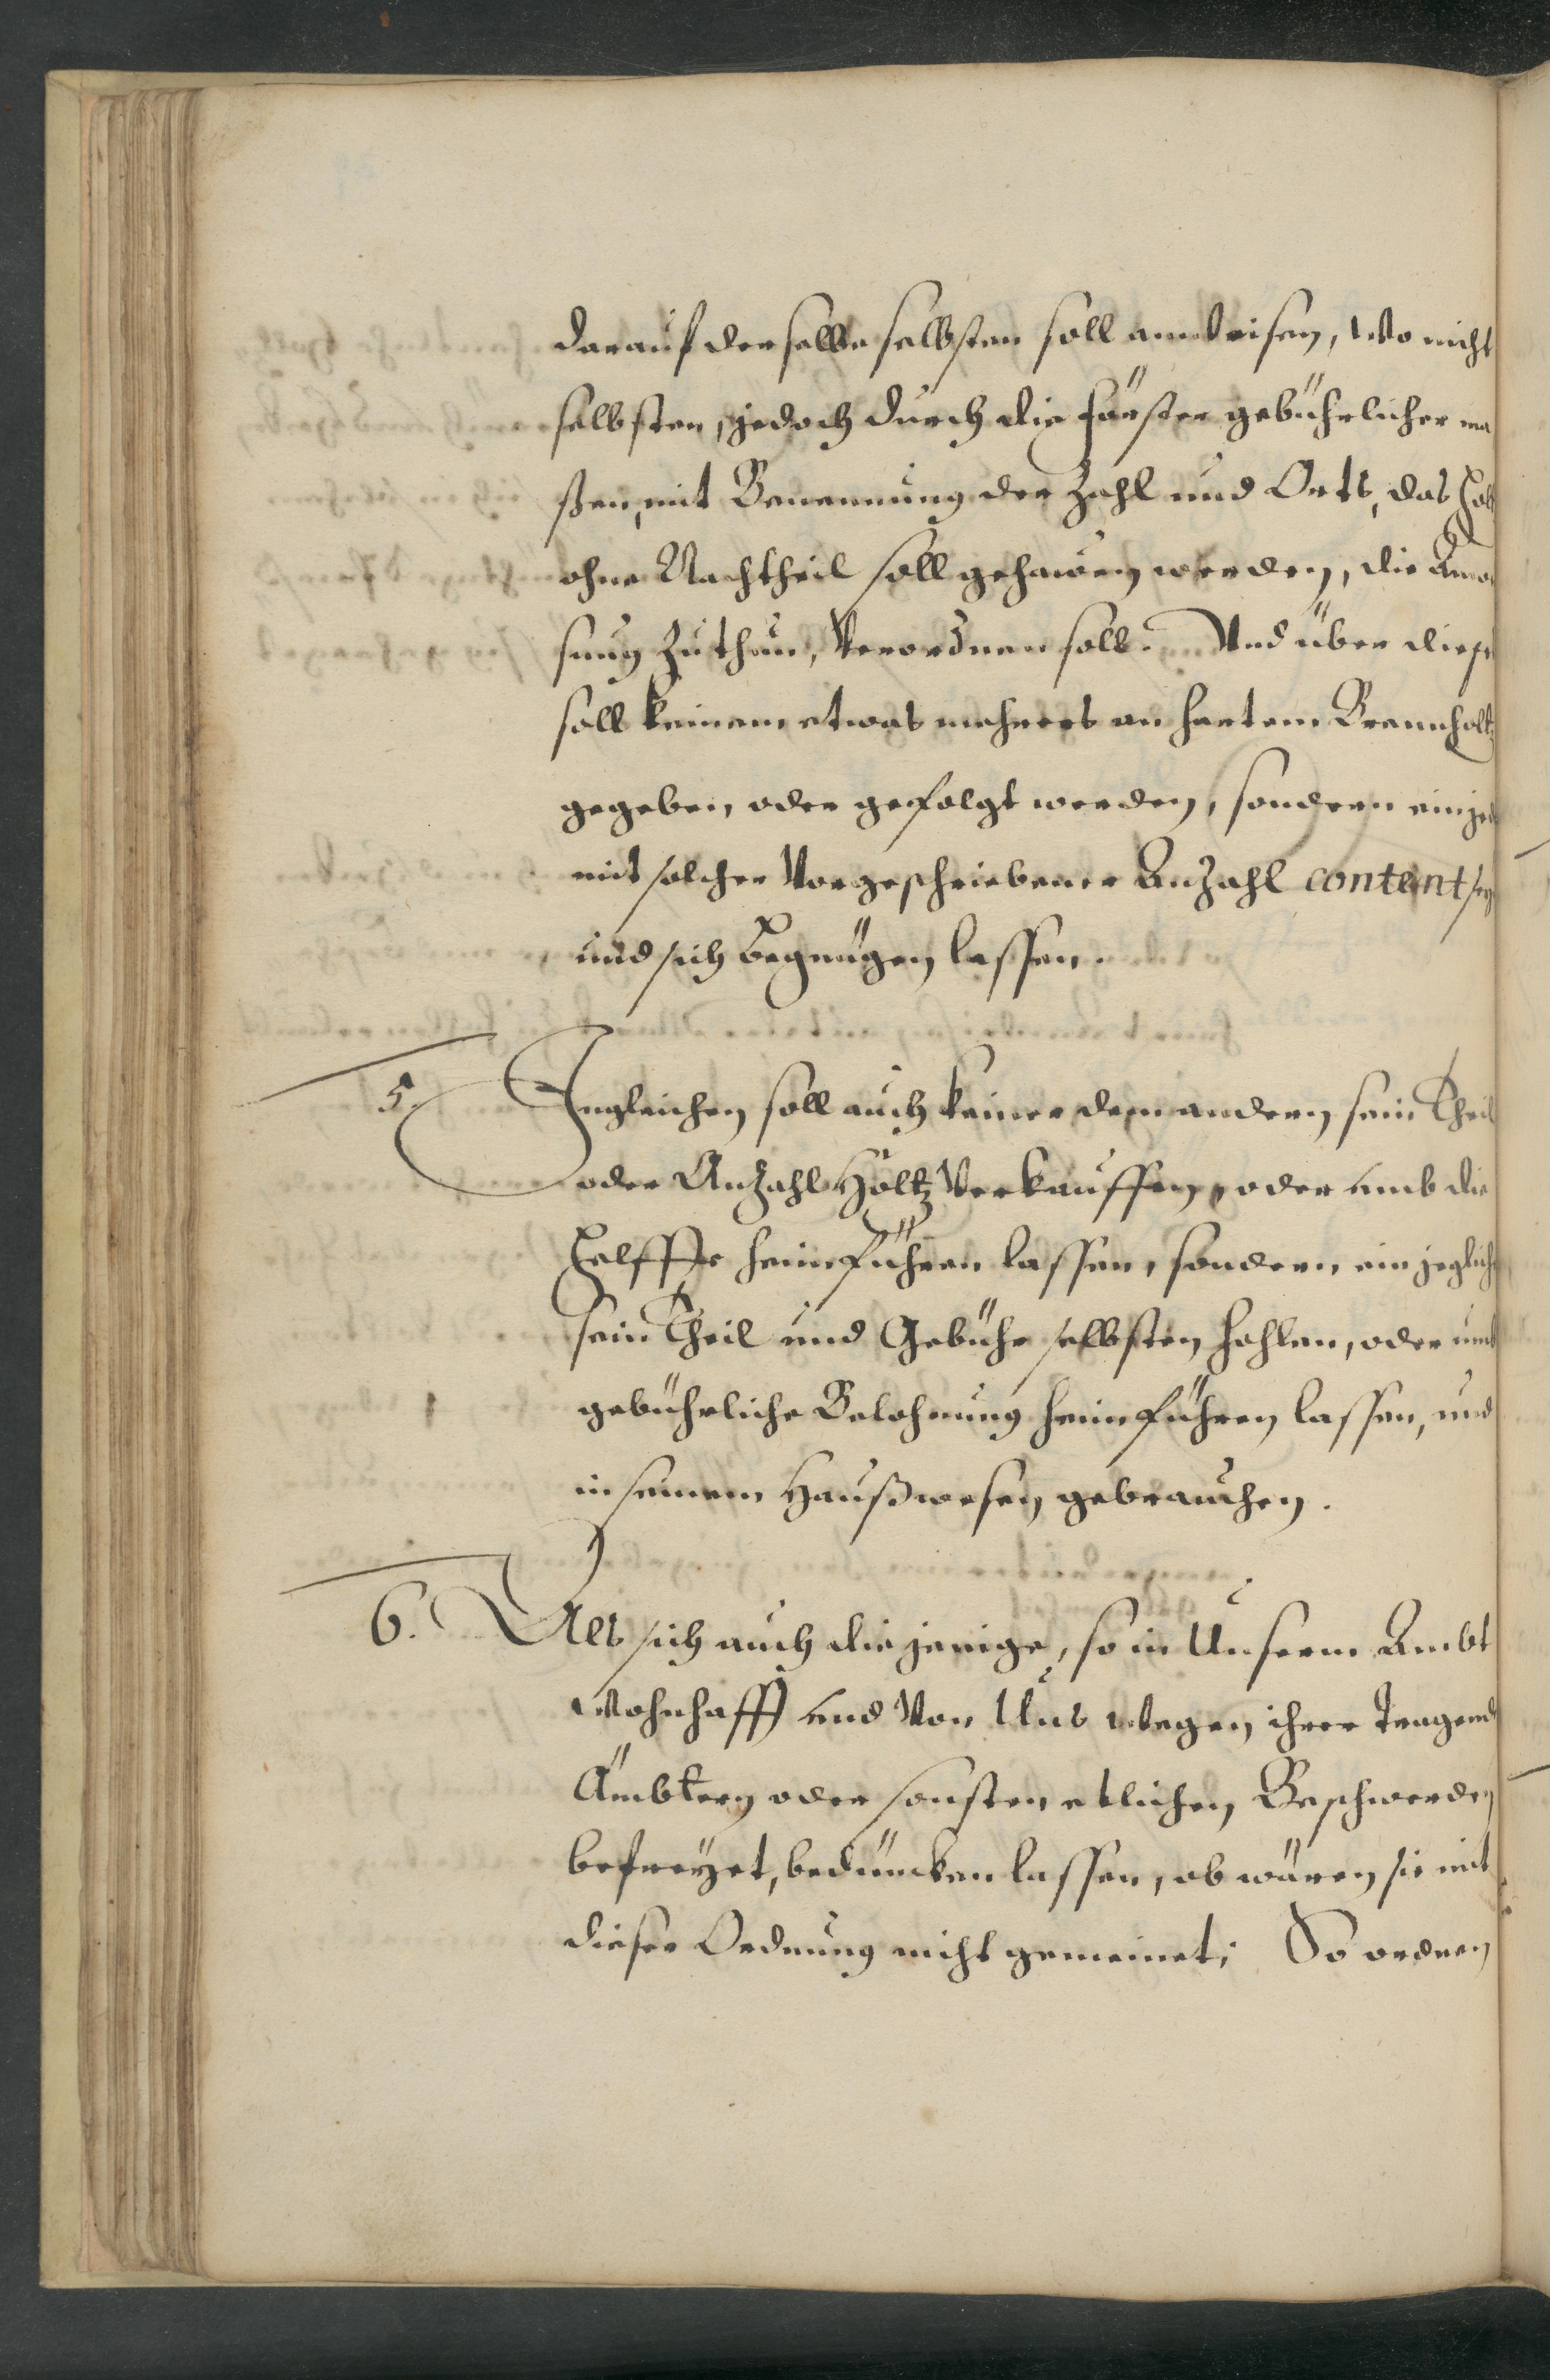 darauf derselbe selbsten soll anweisen, Wo nicht
selbsten, jedoch durch die Förster gebührlicher ma
ßen, mit Benennung der Zahl und Orts, das Hol
ohne Nachtheil soll gehawen werden, die Anw
sung zuthun, Verordnen soll. Und über diese
soll keinem etwas mehrers an hartem Brennholtz
gegeben, oder gefolgt werden, sondern ein jed
mit solcher Vorgeschriebener Anzahl content sey
und sich begnügen lassen.
5. Ingleichen soll auch keiner dem andern sein Theil
oder Anzahl Holtz Verkauffen, oder umb die
Helffte heimführen lassen, sondern ein jeglich
sein Theil und Gebühr selbsten hohlen, oder umb
gebührliche Belohnung heimführen lassen, und
in seinem Haußwesen gebrauchen.
6. Als sich auch diejenige, so in Unserm Ambt
Wohnhafft und Von Uns wegen ihrer tragend
Ämbtern oder sonsten etlichen Beschwerden
befreyet, beduncken lassen, ob wären sie mit
dieser Ordnung nicht gemeinet; So ordnen